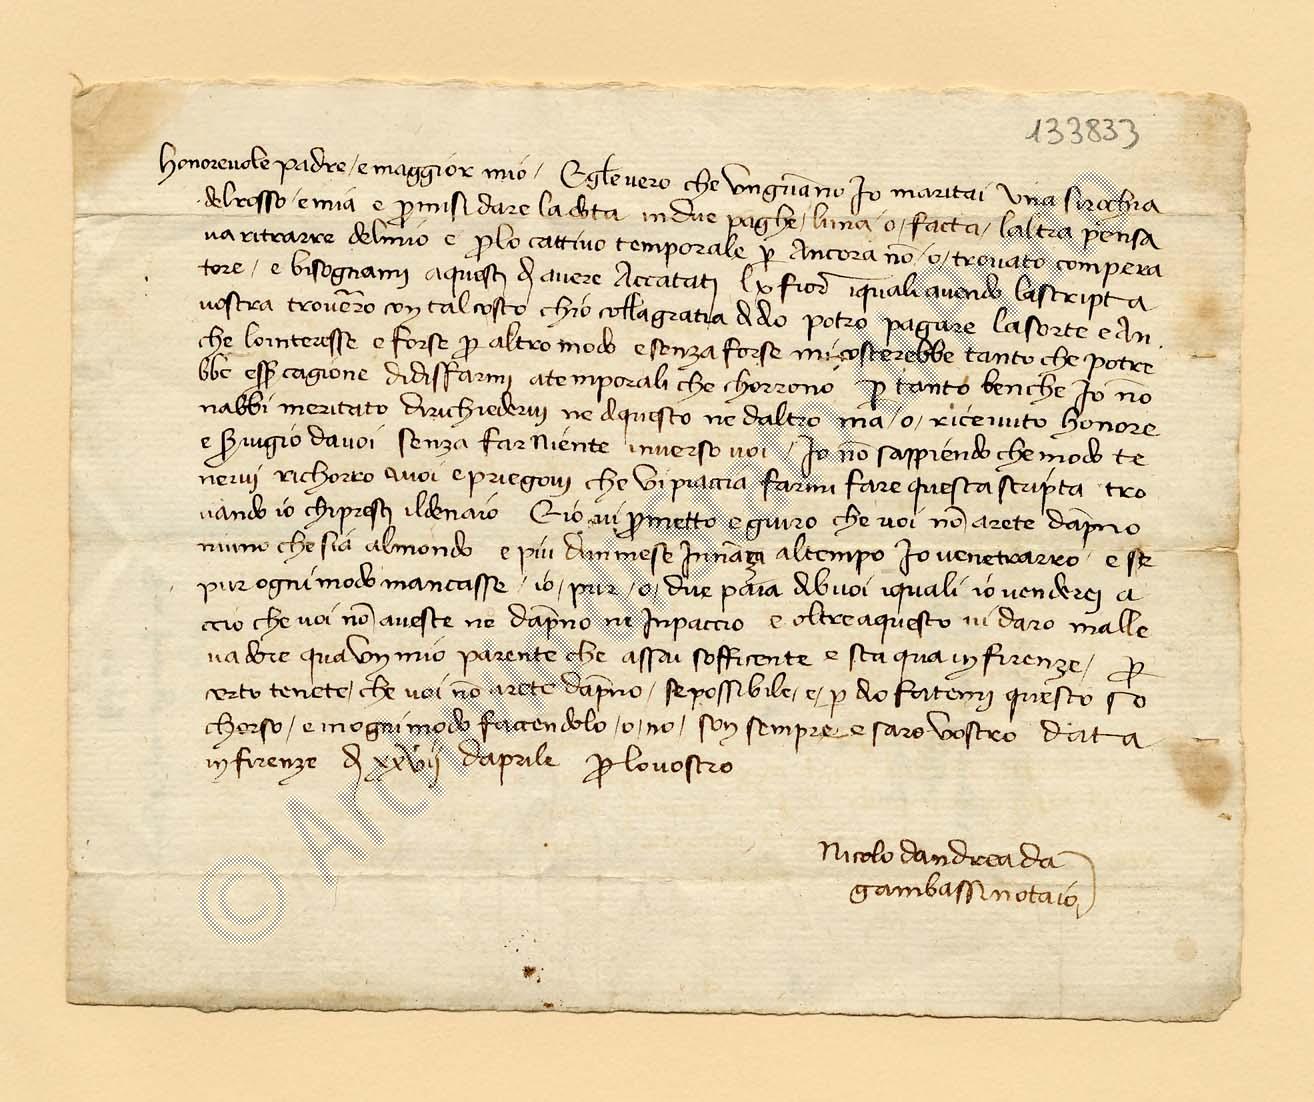 133833
honorevole padre / e maggior mio / Egle vero che unguāno Jo maritai una sirochia
delrosso e mia e pmisi dare la dota in due paghe / luna / o / facta / laltra pensa
va ritrarre delmio e plo cattivo temporale p ancora nō / o / trovato compera
tore / e bisognami aquesti dì avere accatati lx fior iquali avendo lascripta
vostra troverro con tal costo chio colla gratia di dio potro pagare lasorte e an
che lointeresse e forse p altro modo e senza forse mi costerebbe tanto che potre
bbe essr cagione didisfarmi atemporali che chorrono p tanto benche Jo nō
nabbi meritato dirichiedervi ne diquesto ne daltro ma / o / ricevuto honore
e svigio davoi senza far niente inverso voi / Jo nō sappiendo che modo te
nervi richorro avoi e priegovi che vi piaccia farmi fare questa scripta tro
vando io chi presti ildenaio E io vi pmetto e giuro che voi nō arete dapno
niuno che sia almondo e piu dunmese Innāzi altempo Jo venetrarro / e se
pur ogni modo mancasse / io / pur / o / due paia dibuoi iquali io venderei a
ccio che voi nō aveste ne dapno ne Inpaccio e oltreaquesto vi daro malle
vadore qua un mio parente che assai sofficente e sta qua in firenze / p
certo tenete / che voi nō arete dapno / sepossibile / e / p dio fatemi questo so
chorso / e inogni modo faccendolo / o / no / son sempre e saro vostro data
in firenze dì xxvii daprile p lovostro
Nicolo dandrea da
gambassi notaio
© Archivio di Stato